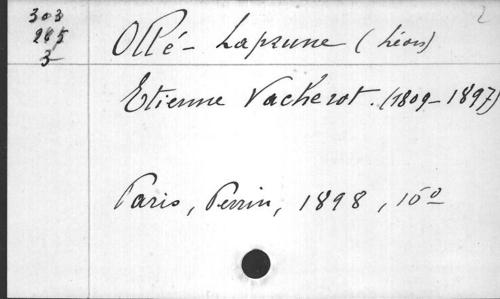 303
285
3
2
Ollé-Laprune (Léon)
Etienne Vacherot. (1809-1897)
Paris, Perrin, 1898, 16º